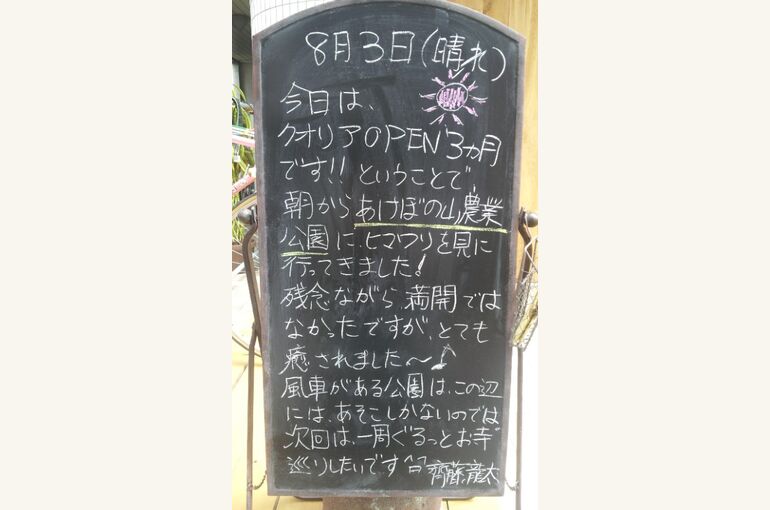 8月3日(晴れ)
今日は、
クオリアOPEN3ヵ月
です!!ということで、
朝からあけぼの山農業
公園にヒマワリを見に
行ってきました!
残念ながら、満開では
なかったですが、とても
癒されました〜♪
風車がある公園は、この辺
には、あそこしかないのでは
次回は、一周ぐるっとお寺
巡りしたいです^□^ 齊藤竜太